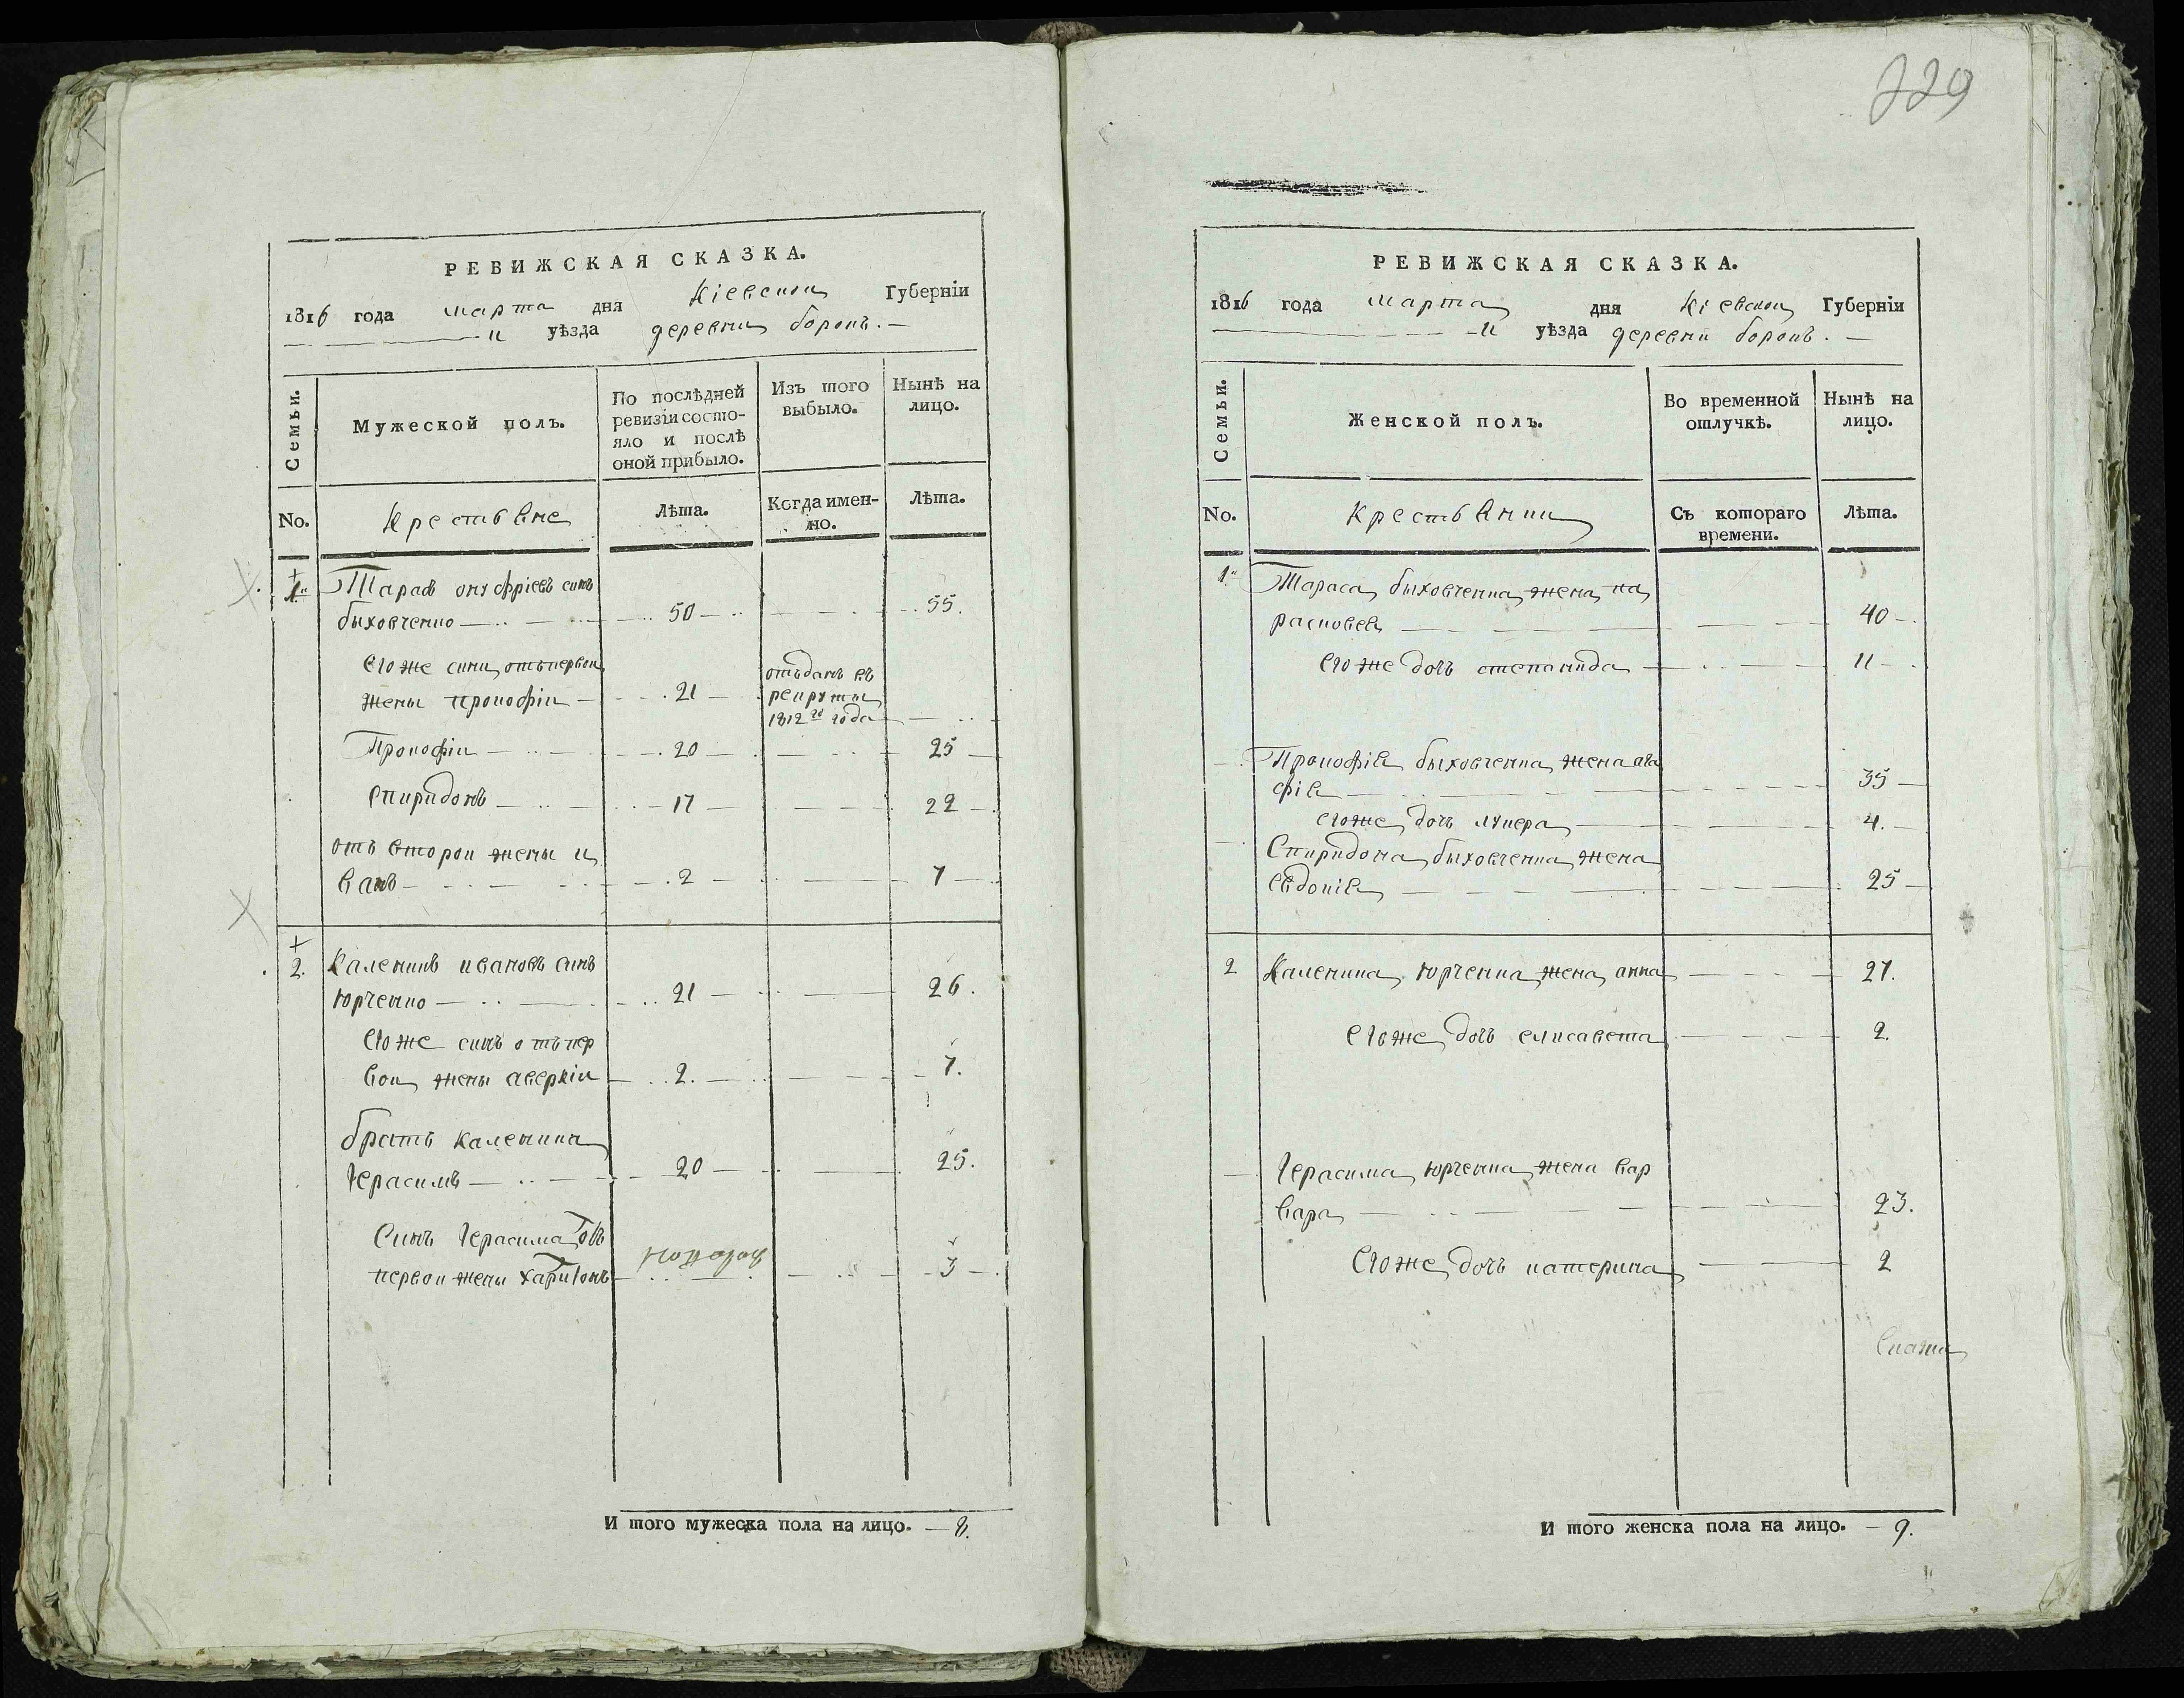 РЕВИЖСКАЯ СКАЗКА.
1816 года марта дня Кіевской Губерніи
уѣзда деревни борокъ.
Семьи.
Мужеской полъ.
По послѣдней ревизіи состояло и послѣ оной прибыло.
Изъ того выбыло.
Нынѣ на лицо.
No.
Крестьяне
Лѣта.
Когда именно.
Лѣта.
1. Тарасъ онуфріевъ синъ
быховченко 50 55.
его же сини отъ первой
жены прокофіи 21 отъданъ въ рекруты 1812го года
Прокофіи 20 25
Спиридонъ 17 22
отъ второи жены и
ванъ 2 7
2. Каленикъ ивановъ синъ
юрченко 21 26.
его же синъ отъ пер
вои жены аверкіи 2. 7.
братъ каленика
Герасимъ 20 25.
Синъ Герасима отъ
первои жены харитонъ 3
И того мужеска пола на лицо. 8.
229
РЕВИЖСКАЯ СКАЗКА.
1816 года марта дня Кіевской Губерніи
уѣзда деревни борокъ.
Семьи.
Женской полъ.
Во временной отлучкѣ.
Нынѣ на лицо.
No.
Крестьянки
Съ котораго времени.
Лѣта.
1. Тараса быховченка жена па
расковея 40
его же дочь степанида 11
Прокофія быховченка жена ага
фія 35
его же дочь лукера 4.
Спиридона быховченка жена
евдокія 25
2 Каленика юрченка жена анна 27.
его же дочь елисавета 2.
Герасима юрченка жена вар
вара 23.
Его же дочь катерина 2
И того женска пола на лицо. 9.